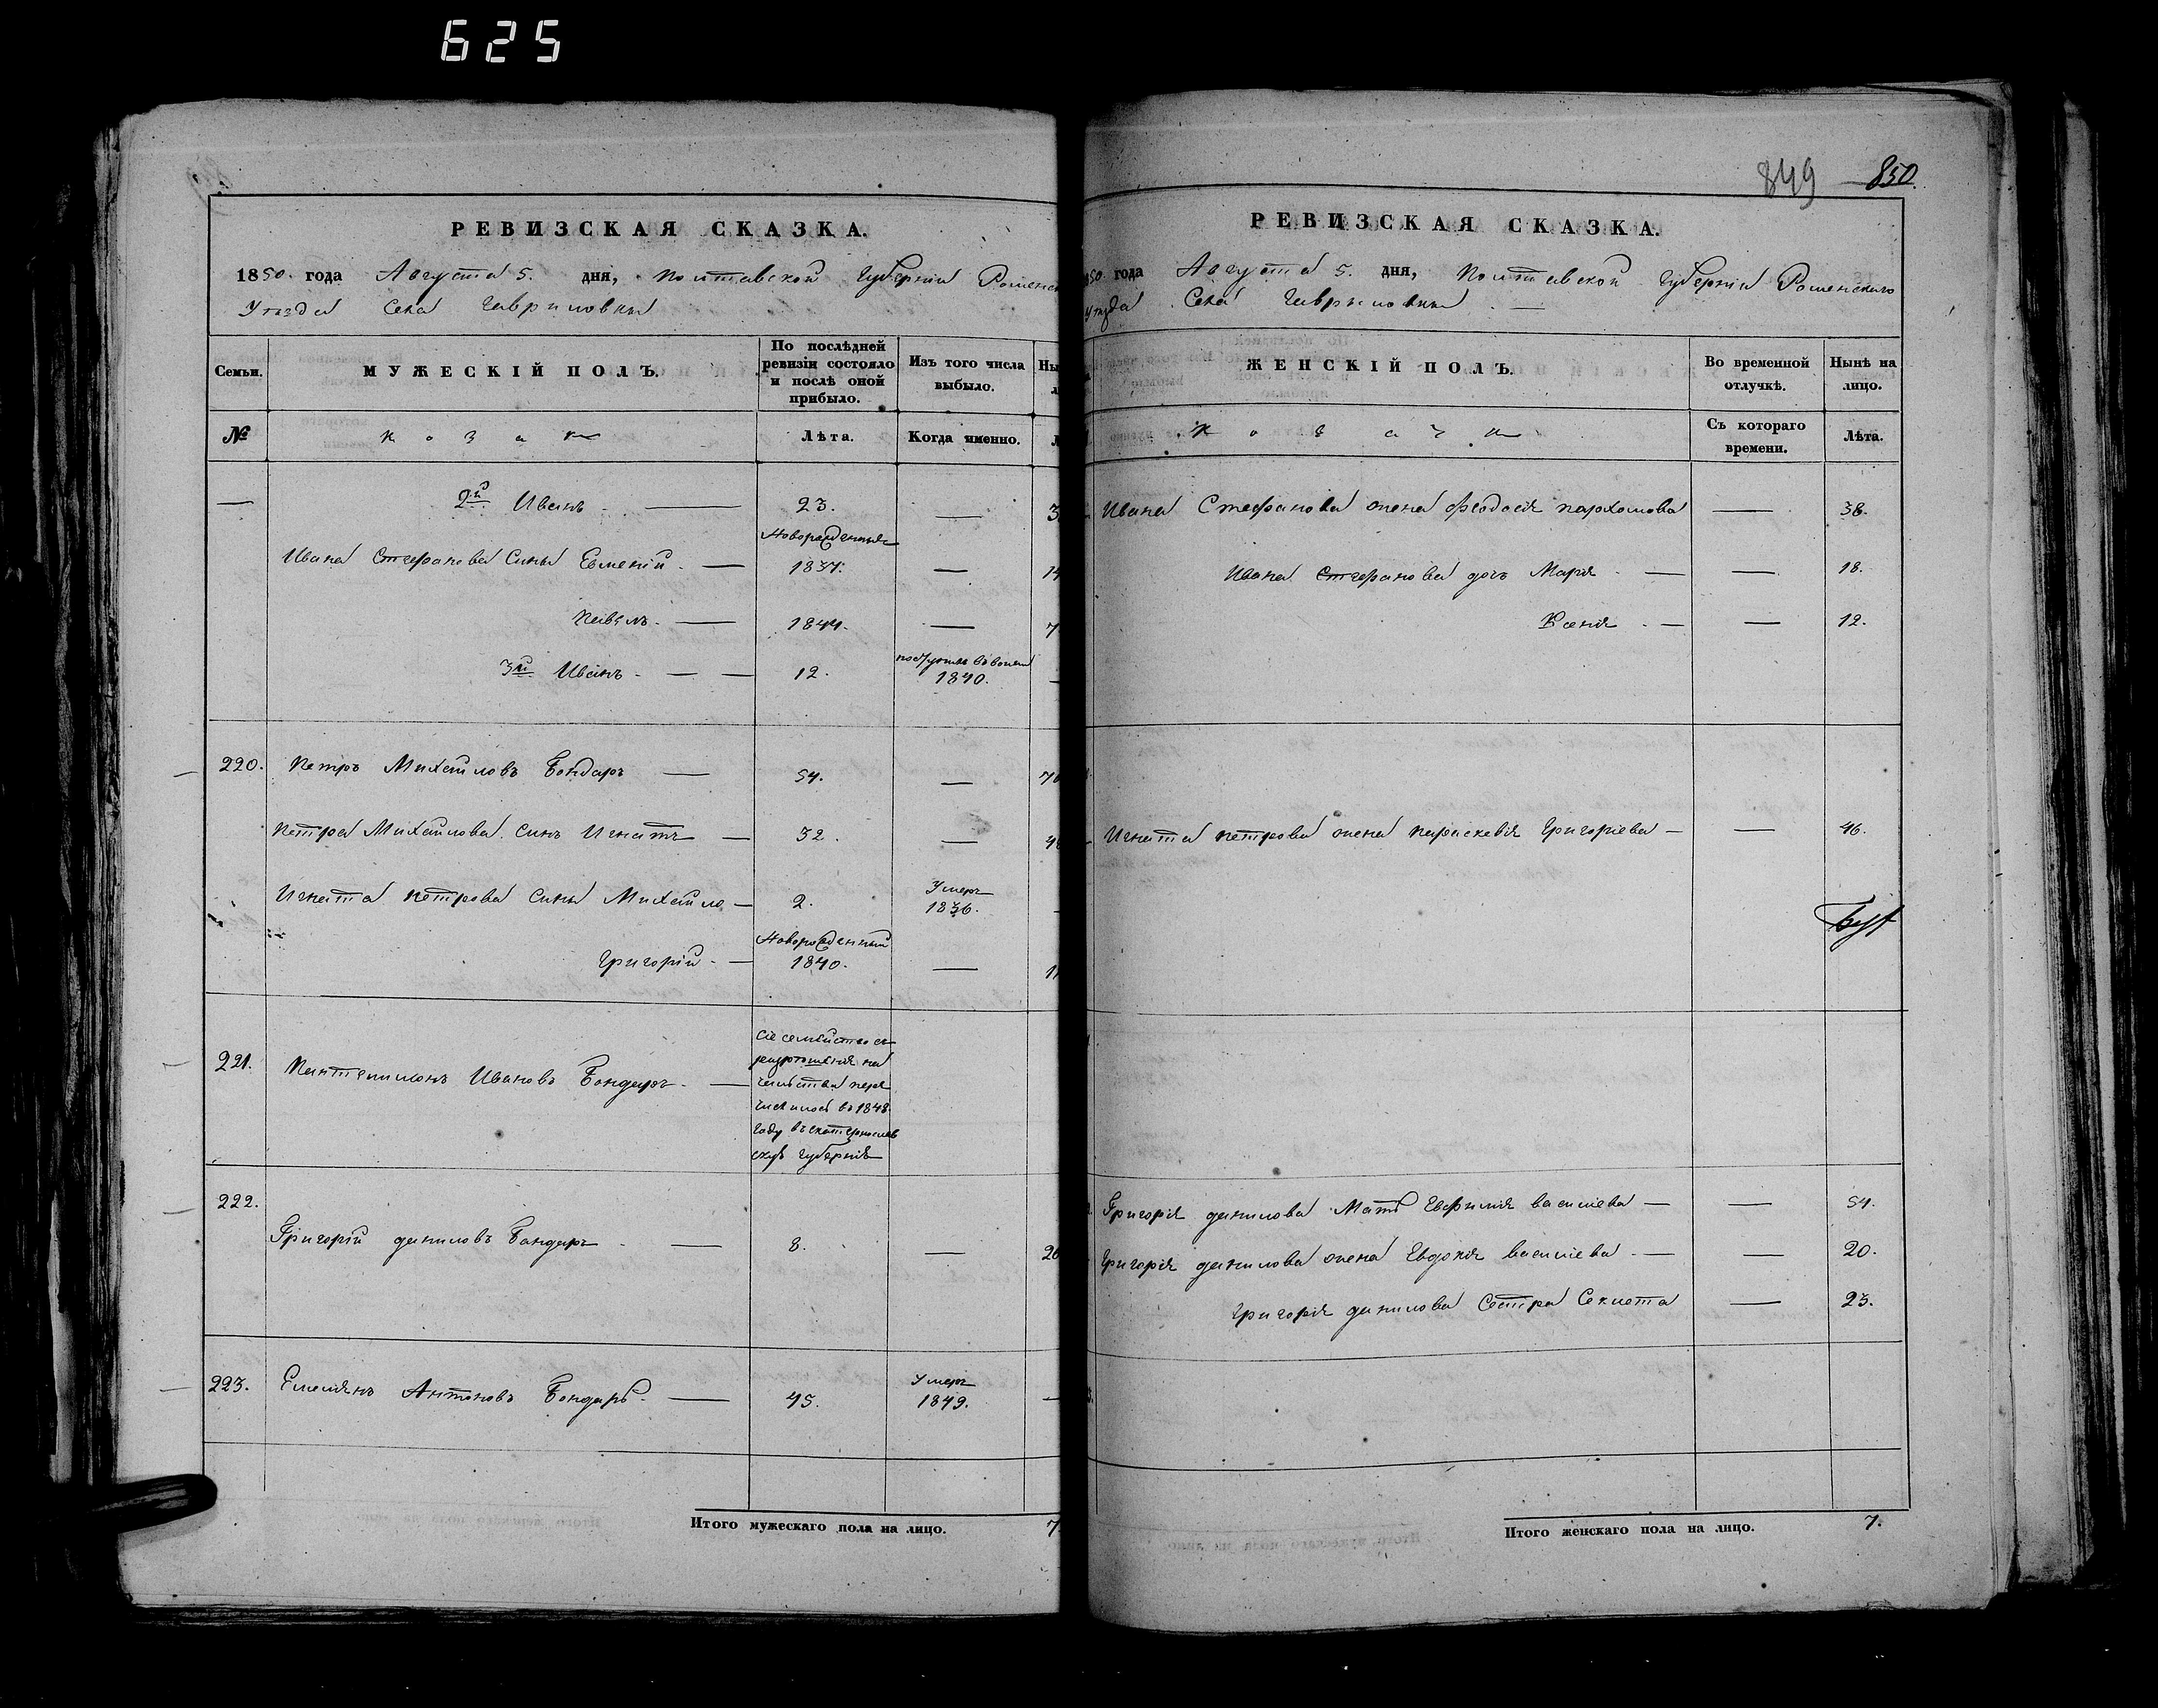 625
849 850
РЕВИЗСКАЯ СКАЗКА.
1850 года Августа 5. дня, Полтавской Губерніи Роменск
Уѣзда Села Гавриловки
Семьи.
МУЖЕСКІЙ ПОЛЪ.
По послѣдней ревизіи состояло и послѣ оной прибыло.
Изъ того числа выбыло.
Ны
№
Козаки
Лѣта.
Когда именно.
— 2й Иванъ — 23. — 3
Новорожденные
Ивана Стефанова Сины Евменій — 1837. — 14
Павелъ — 1844. — 7
3й Иванъ — 12. 1840. —
220. Петръ Михайловъ Бондарь — 54. — 70
Петра Михайлова Синъ Игнатъ — 32. —
Игната Петрова Сины Михайло — 2. Умеръ 1836. —
Новорожденный
Григорій — 1840. — 11
221. Пантелимонъ Ивановъ Бондарь — Сіе семейство съ
на
пере
въ 1848
году въ Екатеринослав
скую Губернію
222.
Григорій Даниловъ Бондарь — 8. —
223. Емелянъ Антоновъ Бондарь — 45. Умеръ 1849. —
Итого мужескаго пола на лицо. 7
РЕВИЗСКАЯ СКАЗКА.
1850 года Августа 5. дня, Полтавской Губерніи Роменскаго
Уѣзда Села Гавриловки —
ЖЕНСКІЙ ПОЛЪ.
Во временной отлучкѣ.
Нынѣ на лицо.
Козачки
Съ котораго времени.
Лѣта.
Ивана Стефанова жена Феодосія Пархомова — 38.
Ивана Стефанова дочь Марія — — 18.
Ксенія — — 12.
Игната Петрова жена Параскевія Григоріева — — 46.
Григорія Данилова Мать Евфимія Василіева — — 54.
Григорія Данилова жена Евдокія Василіева — — 20.
Григорія Данилова Сестра Секлета — 23.
Итого женскаго пола на лицо. 7.